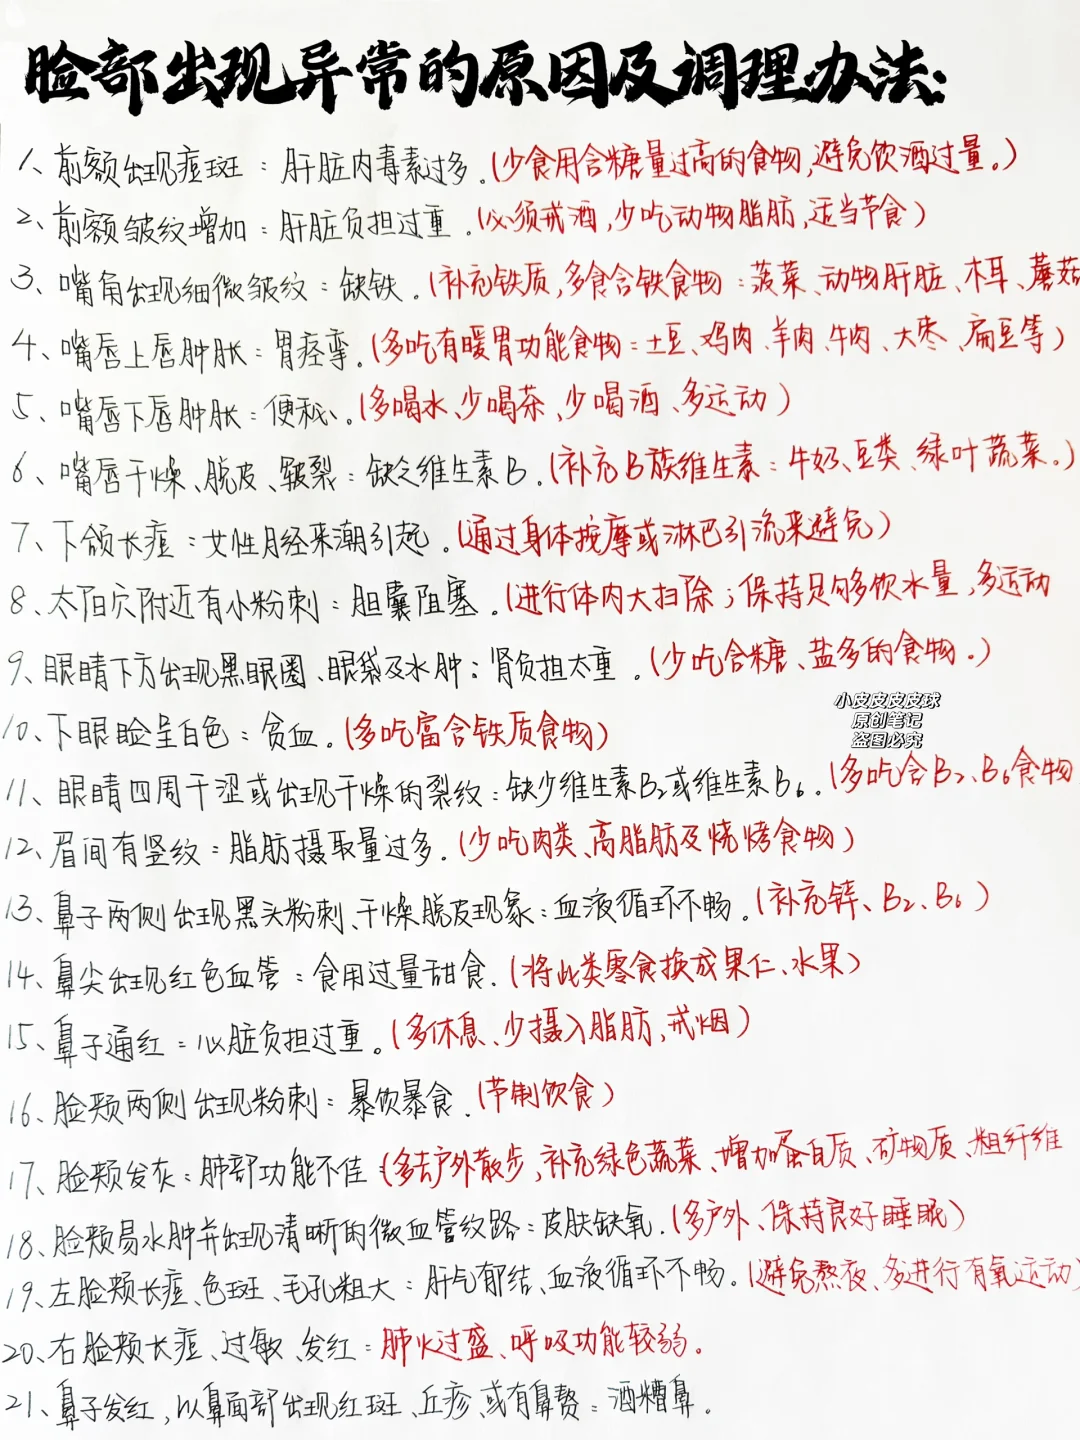 脸部出现异常的原因及调理办法:
1、前额出现痘斑：肝脏内毒素过多.(少食用含糖量过高的食物,避免饮酒过量。)
2、前额皱纹增加：肝脏负担过重.(必须戒酒,少吃动物脂肪,适当节食)
3、嘴角出现细微皱纹：缺铁.(补充铁质,多食含铁食物：菠菜、动物肝脏、木耳、蘑菇
4、嘴唇上唇肿胀：胃痉挛.(多吃有暖胃功能食物：土豆、鸡肉、羊肉、牛肉、大枣、扁豆等)
5、嘴唇下唇肿胀：便秘、。(多喝水、少喝茶、少喝酒、多运动)
6、嘴唇干燥、脱皮、皲裂：缺乏维生素B.(补充B族维生素：牛奶、豆类、绿叶蔬菜。)
7、下颌长痘：女性月经来潮引起.(通过身体按摩或淋巴引流来避免)
8、太阳穴附近有小粉刺：胆囊阻塞.(进行体内大扫除；保持足够多饮水量,多运动
9、眼睛下方出现黑眼圈、眼袋及水肿：肾负担太重.(少吃含糖、盐多的食物。)
小皮皮皮皮球
原创笔记
盗图必究
10、下眼睑呈白色：贫血.(多吃富含铁质食物)
11、眼睛四周干涩或出现干燥的裂纹：缺少维生素B2或维生素B6.(多吃含B2、B6食物
12、眉间有竖纹：脂肪摄取量过多.(少吃肉类、高脂肪及烧烤食物)
13、鼻子两侧出现黑头粉刺、干燥脱皮现象：血液循环不畅.(补充锌、B2、B6)
14、鼻尖出现红色血管：食用过量甜食.(将此类零食换成果仁、水果)
15、鼻子通红：心脏负担过重。(多休息、少摄入脂肪,戒烟)
16、脸颊两侧出现粉刺：暴饮暴食.(节制饮食)
17、脸颊发灰：肺部功能不佳(多去户外散步,补充绿色蔬菜、增加蛋白质、矿物质、粗纤维
18、脸颊易水肿并出现清晰的微血管纹路：皮肤缺氧.(多户外、保持良好睡眠)
19、左脸颊长痘、色斑、毛孔粗大：肝气郁结、血液循环不畅.(避免熬夜、多进行有氧运动)
20、右脸颊长痘、过敏、发红：肺火过盛、呼吸功能较弱.
21、鼻子发红,以鼻面部出现红斑、丘疹、或有鼻赘：酒糟鼻.